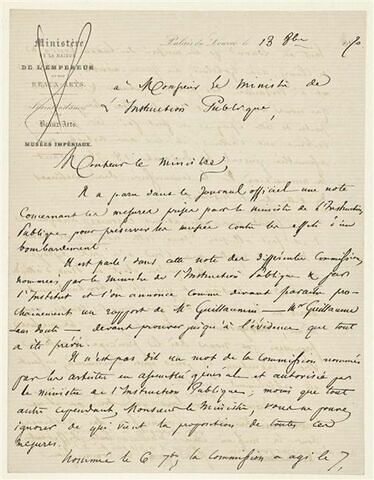 Ministère
DE LA MAISON
DE L'EMPEREUR
ET DES
BEAUX-ARTS.
Surintendance
Beaux-Arts.
MUSÉES IMPÉRIAUX.
Palais du Louvre, le 13 8bre 1870
à Monsieur le Ministre de
l'Instruction Publique,
Monsieur le Ministre,
Il a paru dans le Journal officiel une note
concernant les mesures prises par le ministre de l'Instruction
Publique pour préserver les musées contre les effets d'un
bombardement.
Il est parlé dans cette note des différentes Commissions
nommées par le ministre de l'Instruction Publique &
l'Institut et l'on annonce comme devant paraître pro-
chainement un rapport de Mr Guillaumin — Mr Guillaume
sans doute — devant prouver jusqu'à l'évidence que tout
a été prévu.
Il n'est pas dit un mot de la Commission nommée
par les artistes en assemblée générale et autorisée par
le ministre de l'Instruction Publique, moins que tout
autre cependant, Monsieur le Ministre, vous ne pouvez
ignorer de qui vient la proposition de toutes ces
mesures.
Nommée le 6 7bre la Commission a agi le 7,